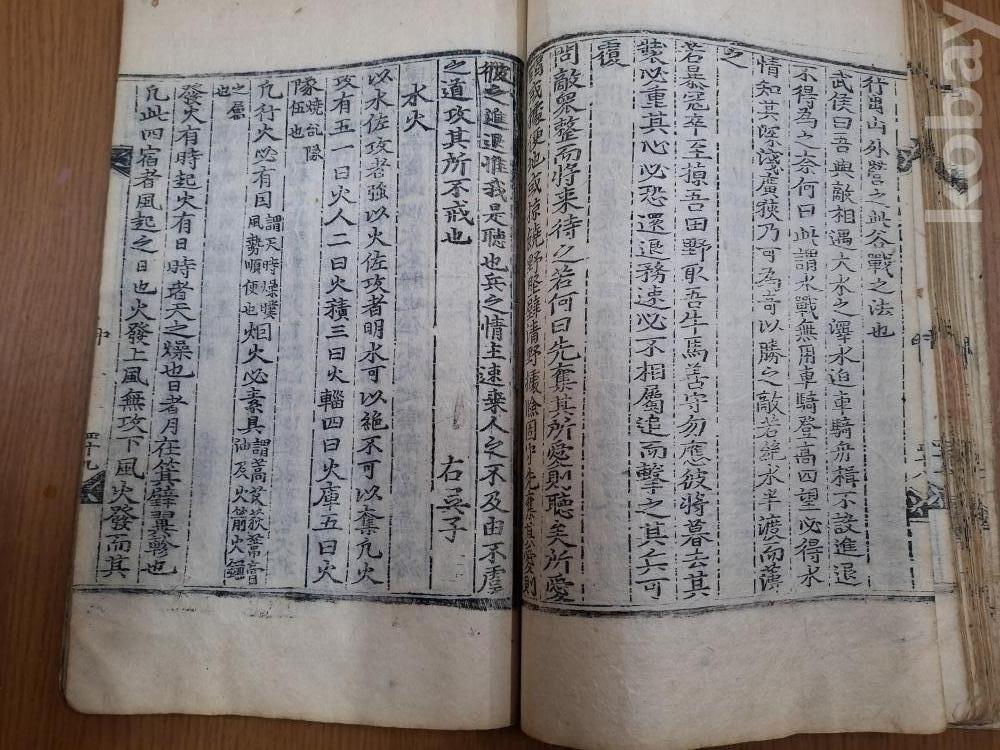 行出山外營之此谷戰之法也
武侯曰吾與敵相遇大水之澤水迫車騎舟楫不設進退
不得爲之奈何曰此謂水戰無用車騎登高四望必得水
情知其深淺廣狹乃可爲奇以勝之敵若絶水半渡而薄
之
若暴寇卒至掠吾田野取吾牛馬善守勿應彼將暮去其
裝必重其心必恐還退務速必不相屬追而擊之其兵可
覆
問敵衆整而將來待之若何曰先奪其所愛則聽矣所愛
或據便地或掠燒野堅壁清野據險固先奪其愛則
彼之進退惟我是聽也兵之情主速乘人之不及由不虞
之道攻其所不戒也 右吳子
水火
以水佐攻者強以火佐攻者明水可以絶不可以奪凡火
攻有五一曰火人二曰火積三曰火輜四曰火庫五曰火
隊燒亂隊伍也
凡行火必有因謂天時燥暵風勢順便也烟火必素具謂蒿荻膏油及火箭火
之屬也
發火有時起火有日時者天之燥也日者月在箕壁翼軫也
凡此四宿者風起之日也火發上風無攻下風火發而其
kobay